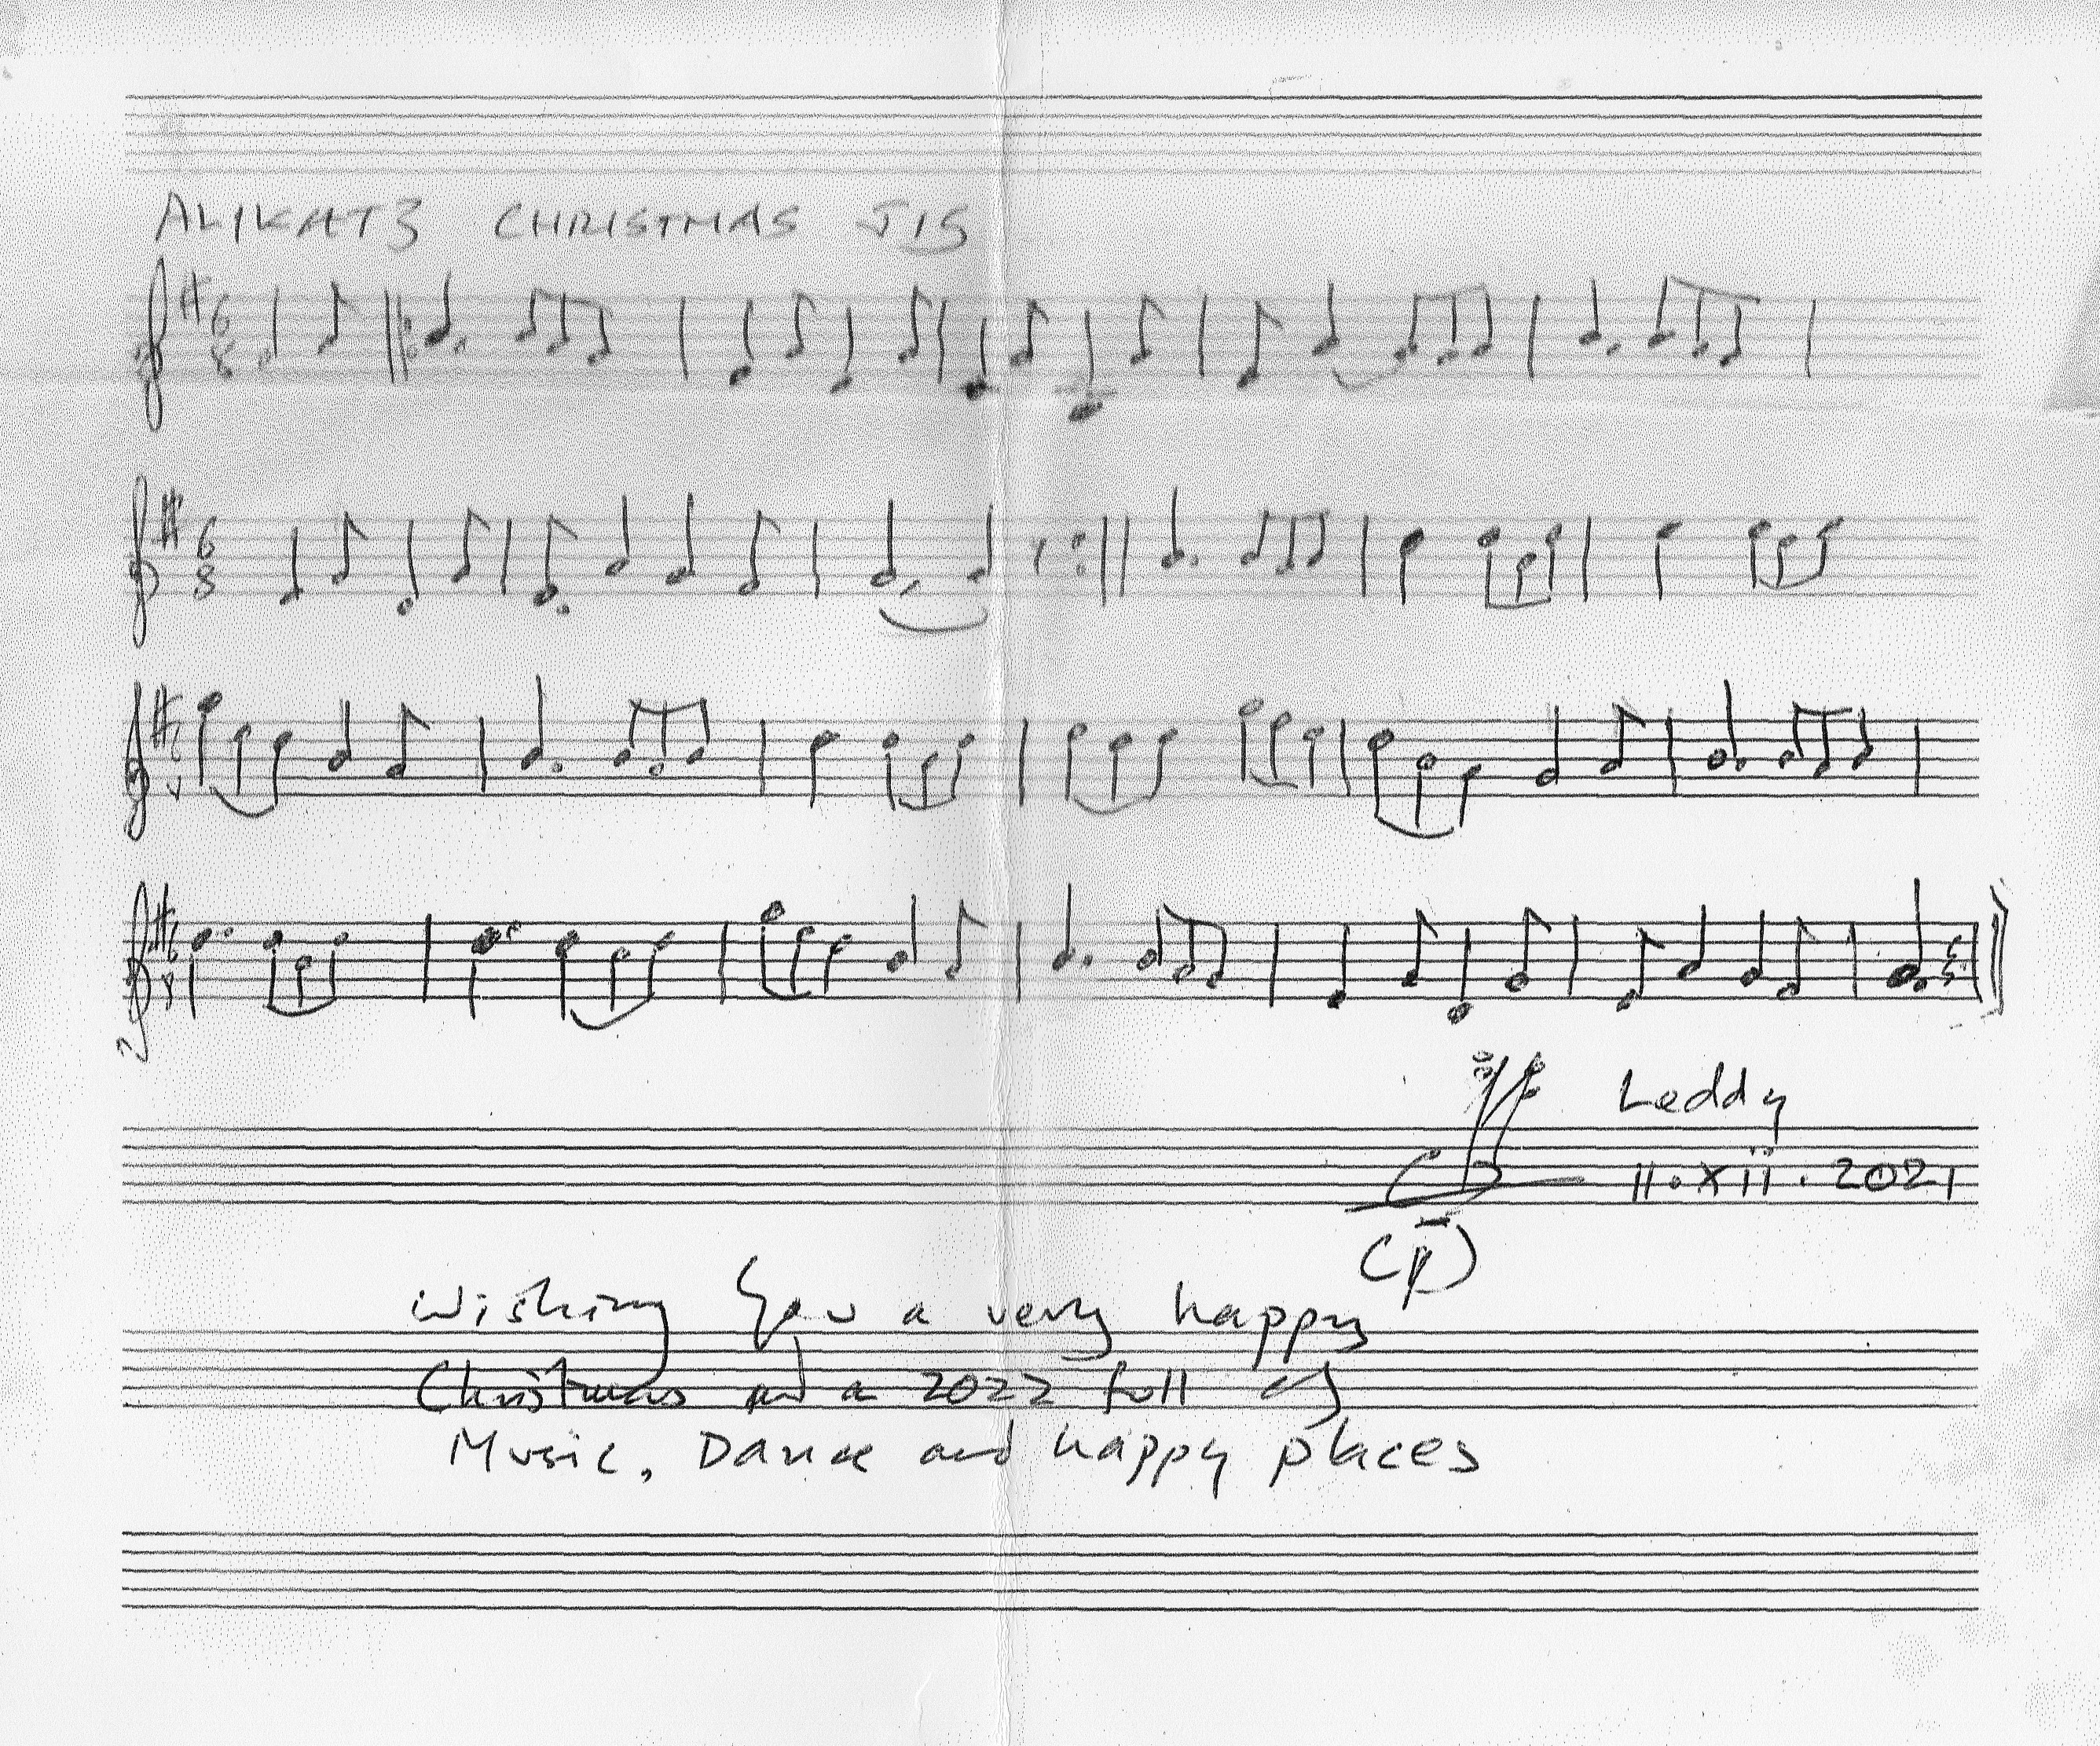 ALIKATZ CHRISTMAS JIG
6
8
6
8
6
8
6
8
Leddy
11.xii.2021
(P)
Wishing You a very happy
Christmas and a 2022 full of
Music, Dance and happy places